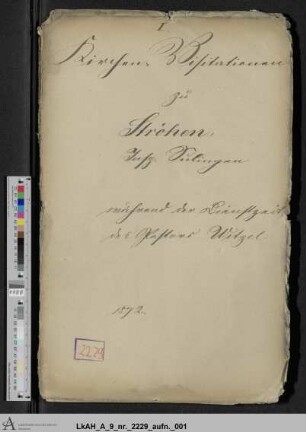 I
Kirchen-Visitationen
zu
Ströhen,
Insp. Sulingen
während der Dienstzeit
des Pastors Witzel
1872.
2229
LkAH_A_9_nr._2229_aufn._001